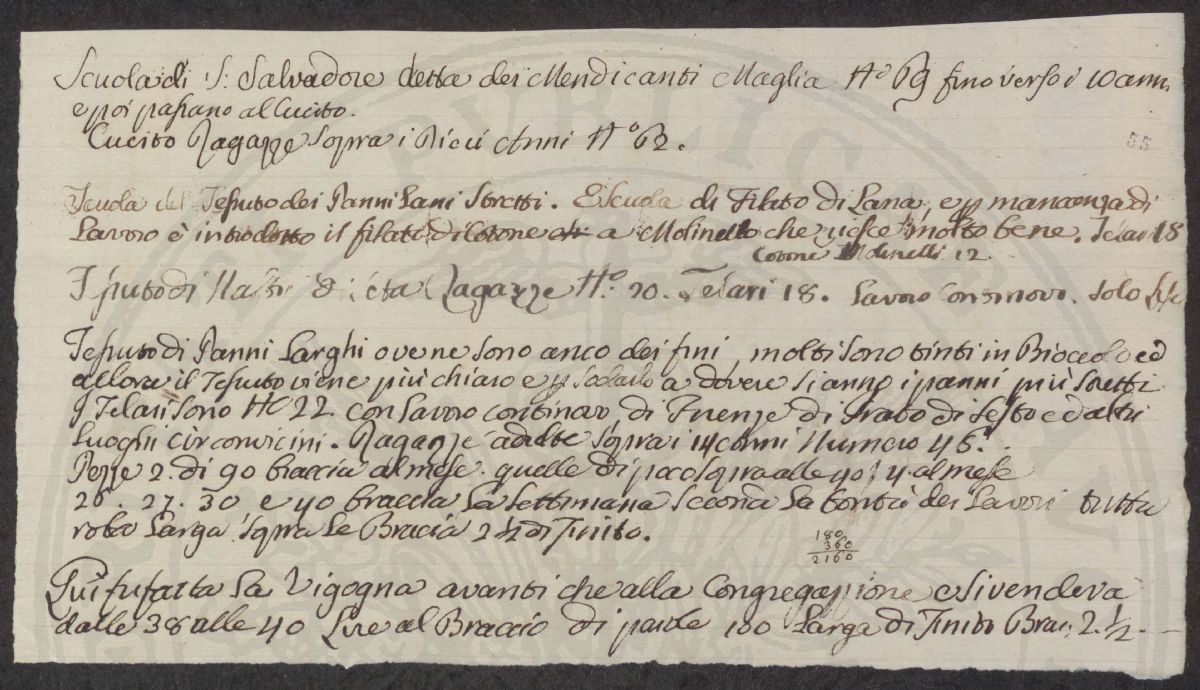 Scuola di S: Salvadore detta dei Mendicanti Maglia No 69 fino verso i 10 anni
e poi passano al Cucito.
Cucito Ragazze sopra i Dieci Anni No 62.
55
Scuola del Tessuto dei Panni Lani Stretti. E Scuola di Filato di Lana, e p mancanza di
Lavoro è introdotto il filato di Cotone a Molinello che riesce molto bene. Telari 18
Cotone Molinelli 12
Tessuto di età Ragazze No. 20. Telari 18. Lavoro Continovo. Solo
Tessuto di Panni Larghi ove ne sono anco dei fini, molti sono tinti in Bioccolo ed
allora il Tessuto viene più chiaro e p sodarlo a dovere si anno i panni più stretti
I Telari sono No 22 con Lavoro continovo di Firenze di Prato di Sesto ed altri
Luoghi circonvicini. Ragazze adulte sopra i 14 Anni Numero 45.
Pezze 2. di 90 braccia al mese. quelle di poco sopra alle 40, 4 al mese
26. 27. 30 e 40 braccia La Settimana seconda La bontà dei Lavori tutta
roba Larga sopra Le Braccia 2 1/2 di Finito.
180
360
2160
Qui fu fatta La Vigogna avanti che alla Congregazzione e si vendeva
dalle 38 alle 40 Lire al Braccio di paiole 100 Larga di Finito Brac. 2. 1/2. -